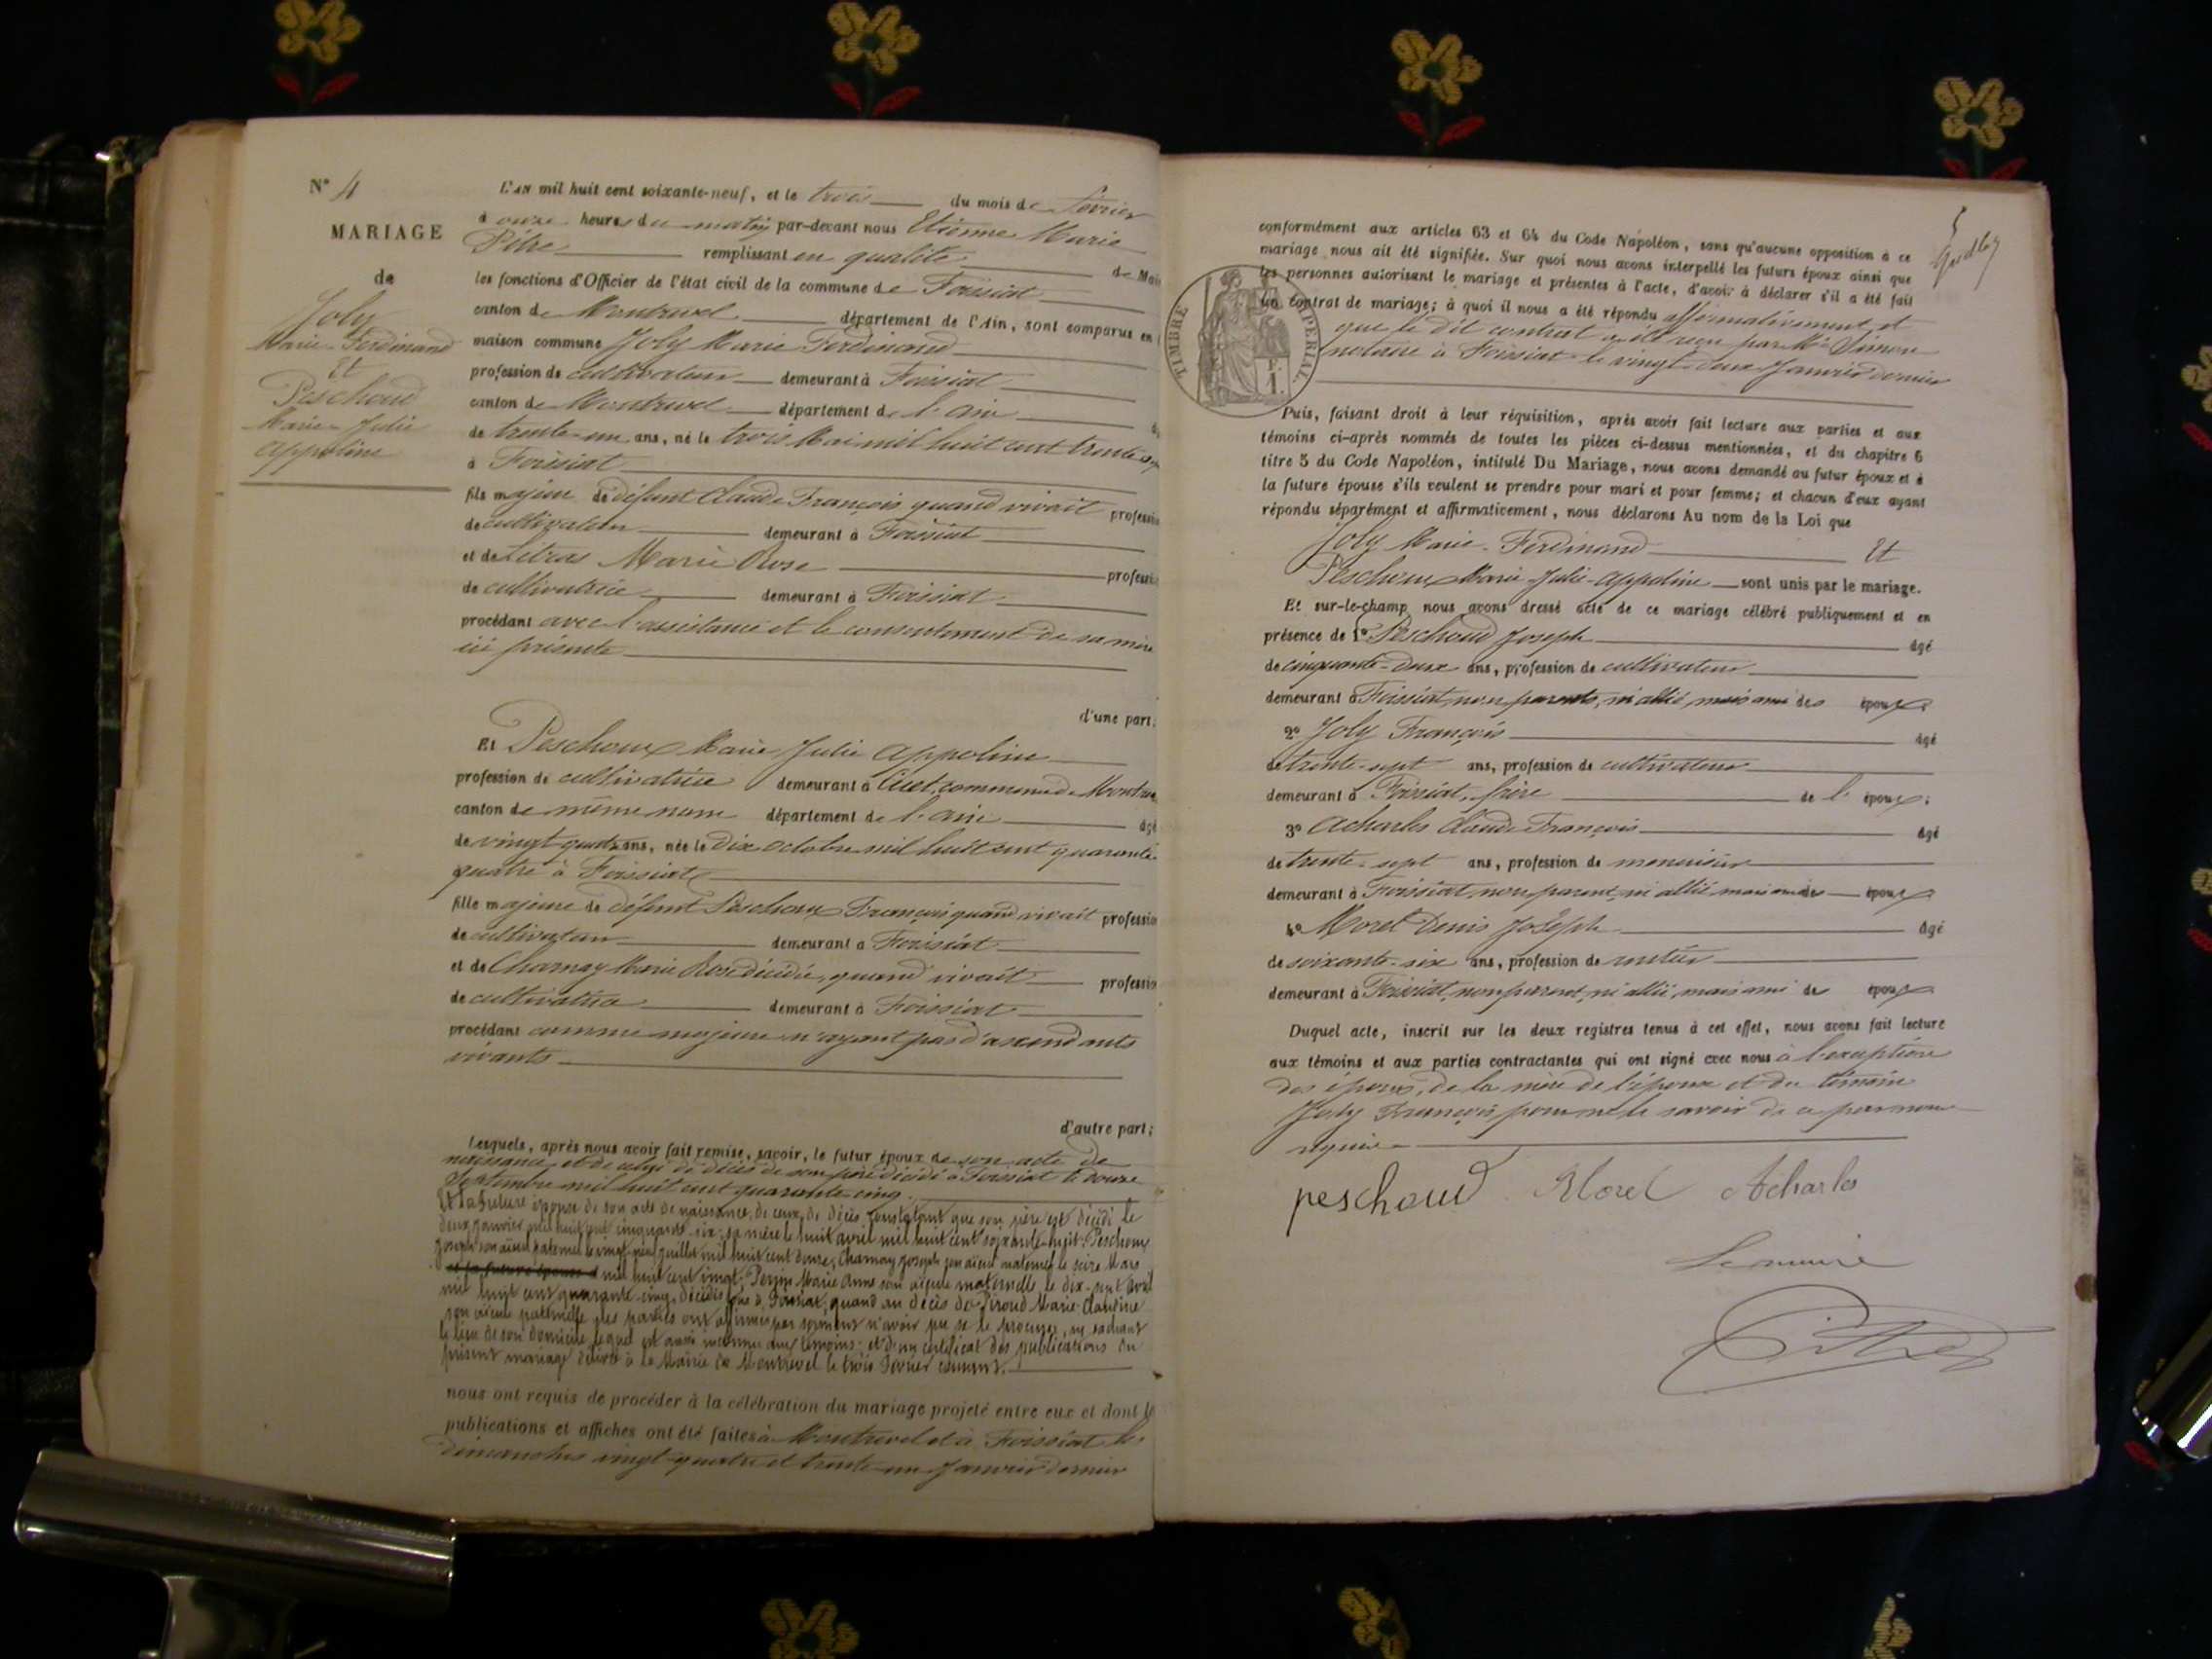 N° 4
MARIAGE
de
Joly
Marie-Ferdinand
Et
Peschoud
Marie-Julie
Appoline
L'AN mil huit cent soixante-neuf, et le trois du mois de février
à onze heures du matin par-devant nous Etienne Marie
Pitre remplissant en qualité de Mai
les fonctions d'Officier de l'état civil de la commune de Foissiat
canton de Montrevel département de l'Ain, sont comparus en
maison commune Joly Marie Ferdinand
profession de cultivateur demeurant à Foissiat
canton de Montrevel département de l'ain
de trente-un ans, né le trois Mai mil huit cent trente-sep
à Foissiat
fils majeur de défunt Claude François quand vivait professio
de cultivateur demeurant à Foissiat
et de Létras Marie Rose professio
de cultivatrice demeurant à Foissiat
procédant avec l'assistance et le consentement de sa mère
ici présente
d'une part;
Et Peschoux Marie Julie Appoline
profession de cultivatrice demeurant à Cuet, commune de Montrev
canton de même nom département de l'ain âgé
de vingt quatre ans, née le dix octobre mil huit cent quarante
quatre à Foissiat
fille majeure de défunt Peschoux François quand vivait professio
de cultivateur demeurant à Foissiat
et de Charnay Marie Rose décédée, quand vivait professio
de cultivatrice demeurant à Foissiat
procédant comme majeure n'ayant pas d'ascendants
vivants
d'autre part;
Lesquels, après nous avoir fait remise, savoir, le futur époux de son acte de
naissance et de celui de décès de son père décédé à Foissiat le douze
Septembre mil huit cent quarante-cinq.
Et la future épouse de son acte de naissance, de ceux de décès constatant que son père est décédé le
deux janvier mil huit cent cinquante-six; sa mère le huit avril mil huit cent soixante-huit; Peschoux
Joseph son aïeul paternel le vingt-neuf juillet mil huit cent douze; Charnay Joseph son aïeul maternel le seize Mars
et la future épouse d mil huit cent vingt; Perrin Marie Anne son aïeule maternelle le dix-sept avril
mil huit cent quarante-cinq, décédés tous à Foissiat; quand au décès de Piroud Marie Claudine
son aïeule paternelle, les parties ont affirmé par serment n'avoir pu se le procurer, ne sachant
le lieu de son domicile lequel est aussi inconnu aux témoins; et d'un certificat des publications du
présent mariage délivré à la Mairie de Montrevel le trois février courant.
nous ont requis de procéder à la célébration du mariage projeté entre eux et dont le
publications et affiches ont été faites à Montrevel et à Foissiat les
dimanches vingt-quatre et trente-un Janvier dernier
5
conformément aux articles 63 et 64 du Code Napoléon, sans qu'aucune opposition à ce
mariage nous ait été signifiée. Sur quoi nous avons interpellé les futurs époux ainsi que
les personnes autorisant le mariage et présentes à l'acte, d'avoir à déclarer s'il a été fait
un contrat de mariage; à quoi il nous a été répondu affirmativement et
que le dit contrat a été reçu par Me Simon
notaire à Foissiat le vingt-deux Janvier dernier
TIMBRE IMPÉRIAL.
F.
1.
Puis, faisant droit à leur réquisition, après avoir fait lecture aux parties et aux
témoins ci-après nommés de toutes les pièces ci-dessus mentionnées, et du chapitre 6
titre 5 du Code Napoléon, intitulé Du Mariage, nous avons demandé au futur époux et à
la future épouse s'ils veulent se prendre pour mari et pour femme; et chacun d'eux ayant
répondu séparément et affirmativement, nous déclarons Au nom de la Loi que
Joly Marie-Ferdinand Et
Peschoux Marie-Julie-Appoline sont unis par le mariage.
Et sur-le-champ nous avons dressé acte de ce mariage célébré publiquement et en
présence de 1° Peschoud Joseph âgé
de cinquante-deux ans, profession de cultivateur
demeurant à Foissiat, non parent, ni allié, mais ami des époux;
2° Joly François âgé
de trente-sept ans, profession de cultivateur
demeurant à Foissiat, frère de l'époux;
3° Acharles Claude François âgé
de trente-sept ans, profession de menuisier
demeurant à Foissiat, non parent, ni allié mais ami des époux
4° Morel Denis Joseph âgé
de soixante-six ans, profession de rentier
demeurant à Foissiat, non parent, ni allié, mais ami des époux
Duquel acte, inscrit sur les deux registres tenus à cet effet, nous avons fait lecture
aux témoins et aux parties contractantes qui ont signé avec nous à l'exception
des époux, de la mère de l'époux et du témoin
Joly François pour ne le savoir de ce par nous
requis
peschoud Morel Acharles
Le maire
Pitre